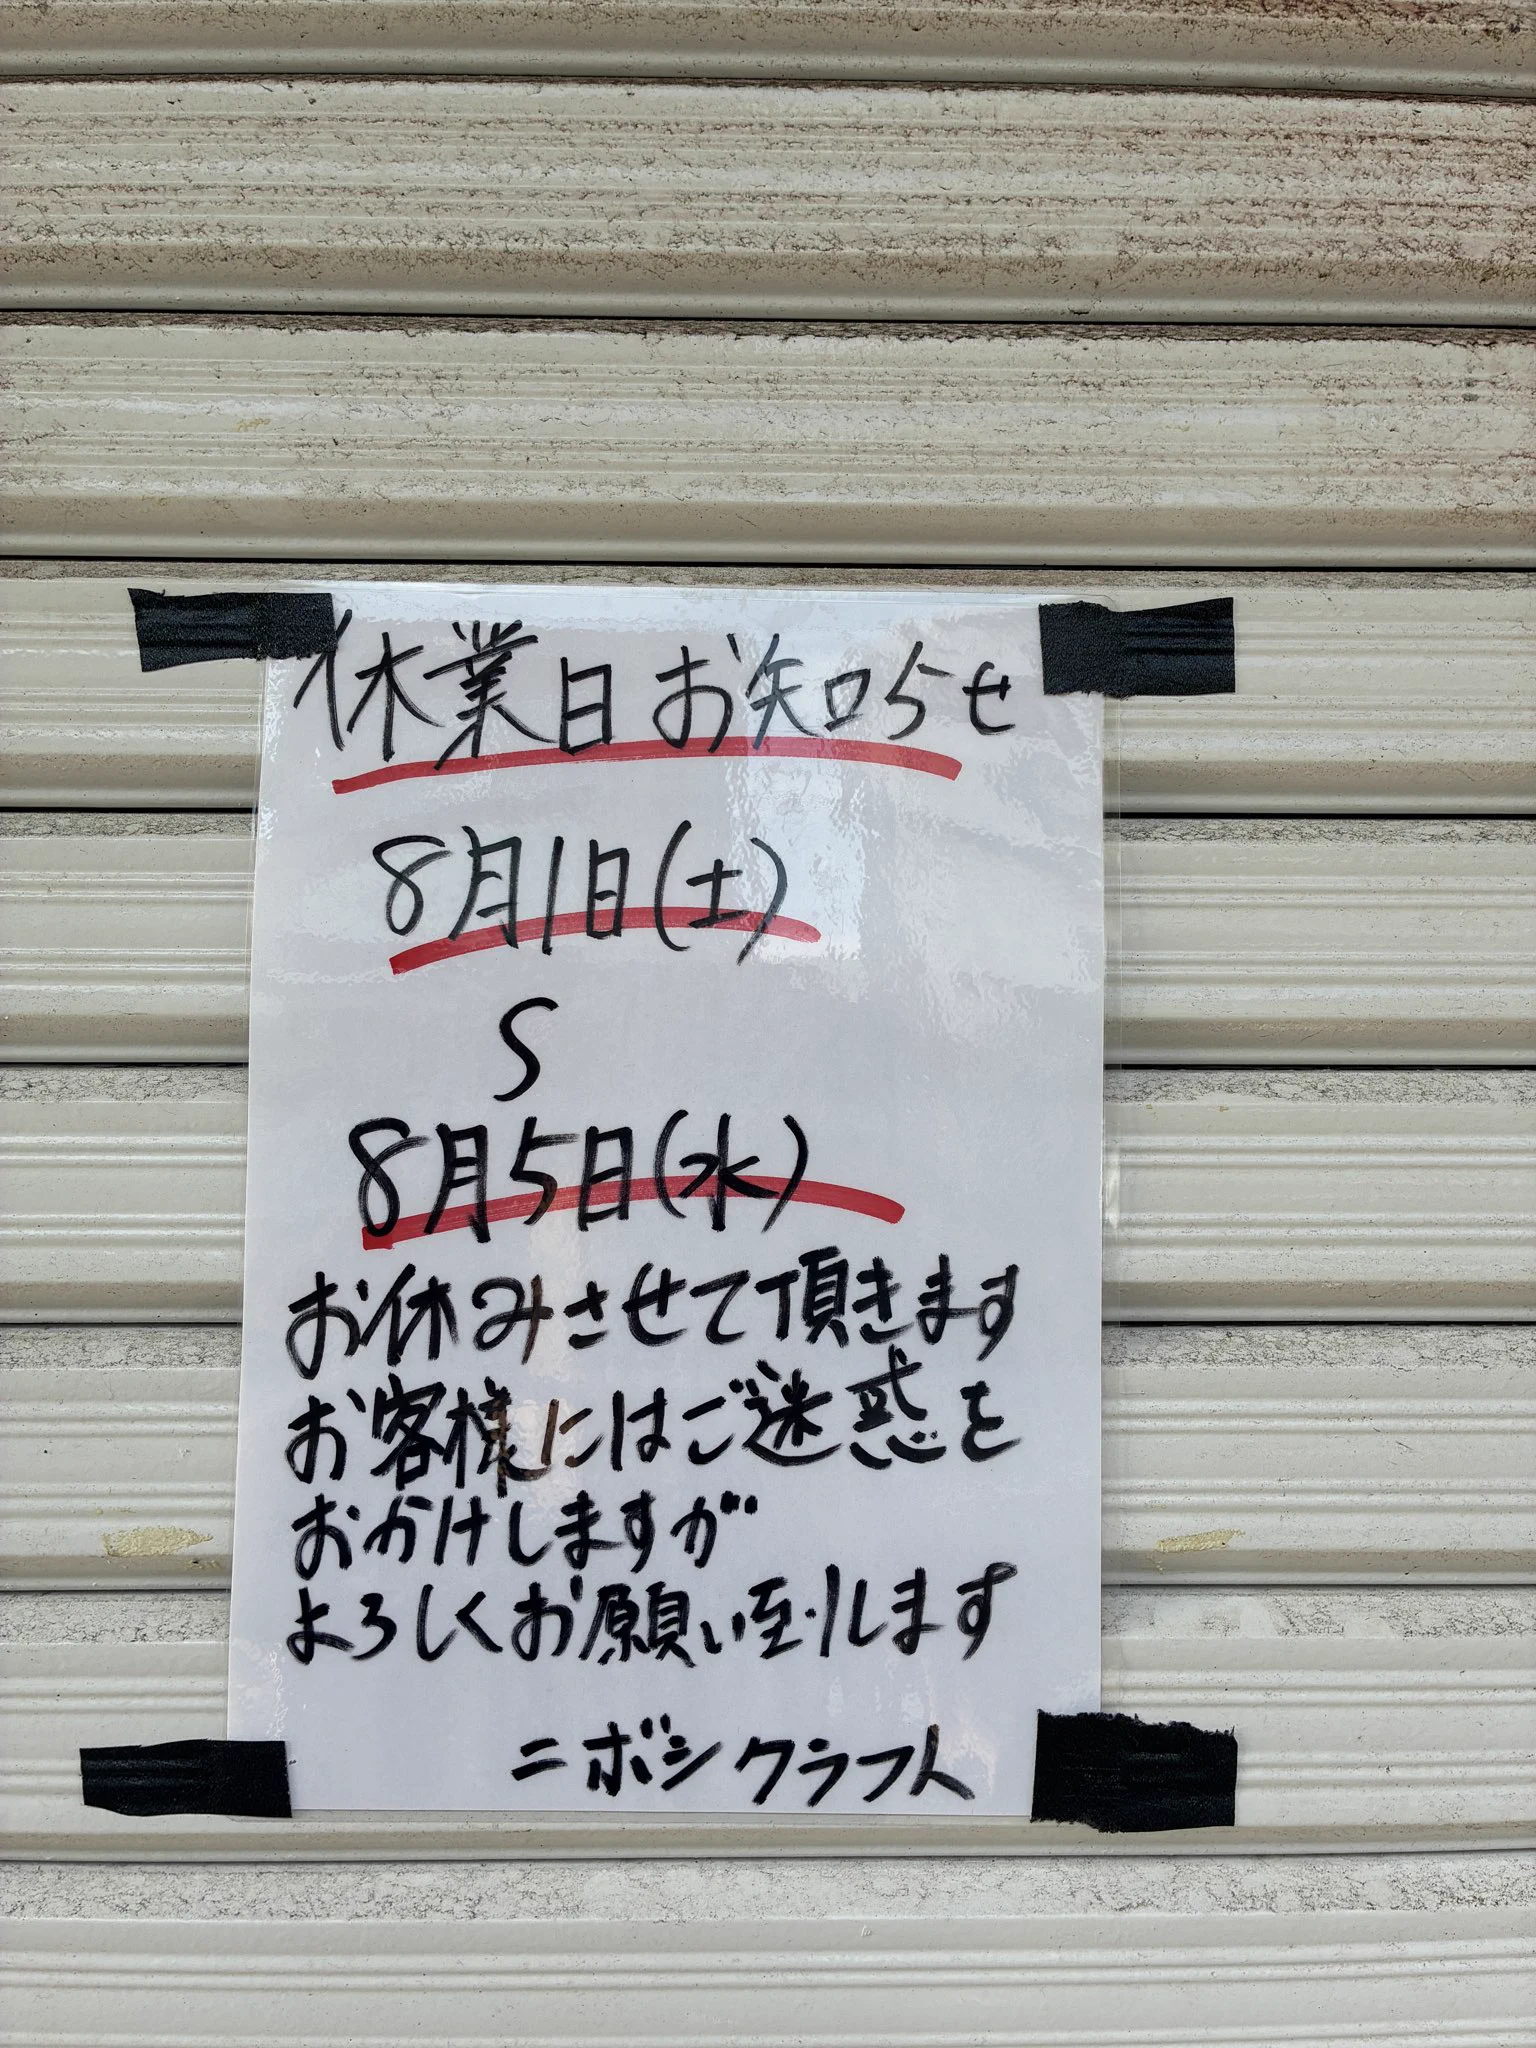 休業日お知らせ
8月1日(土)
〜
8月5日(水)
お休みさせて頂きます
お客様にはご迷惑を
おかけしますが
よろしくお願い致します
ニボシクラフト